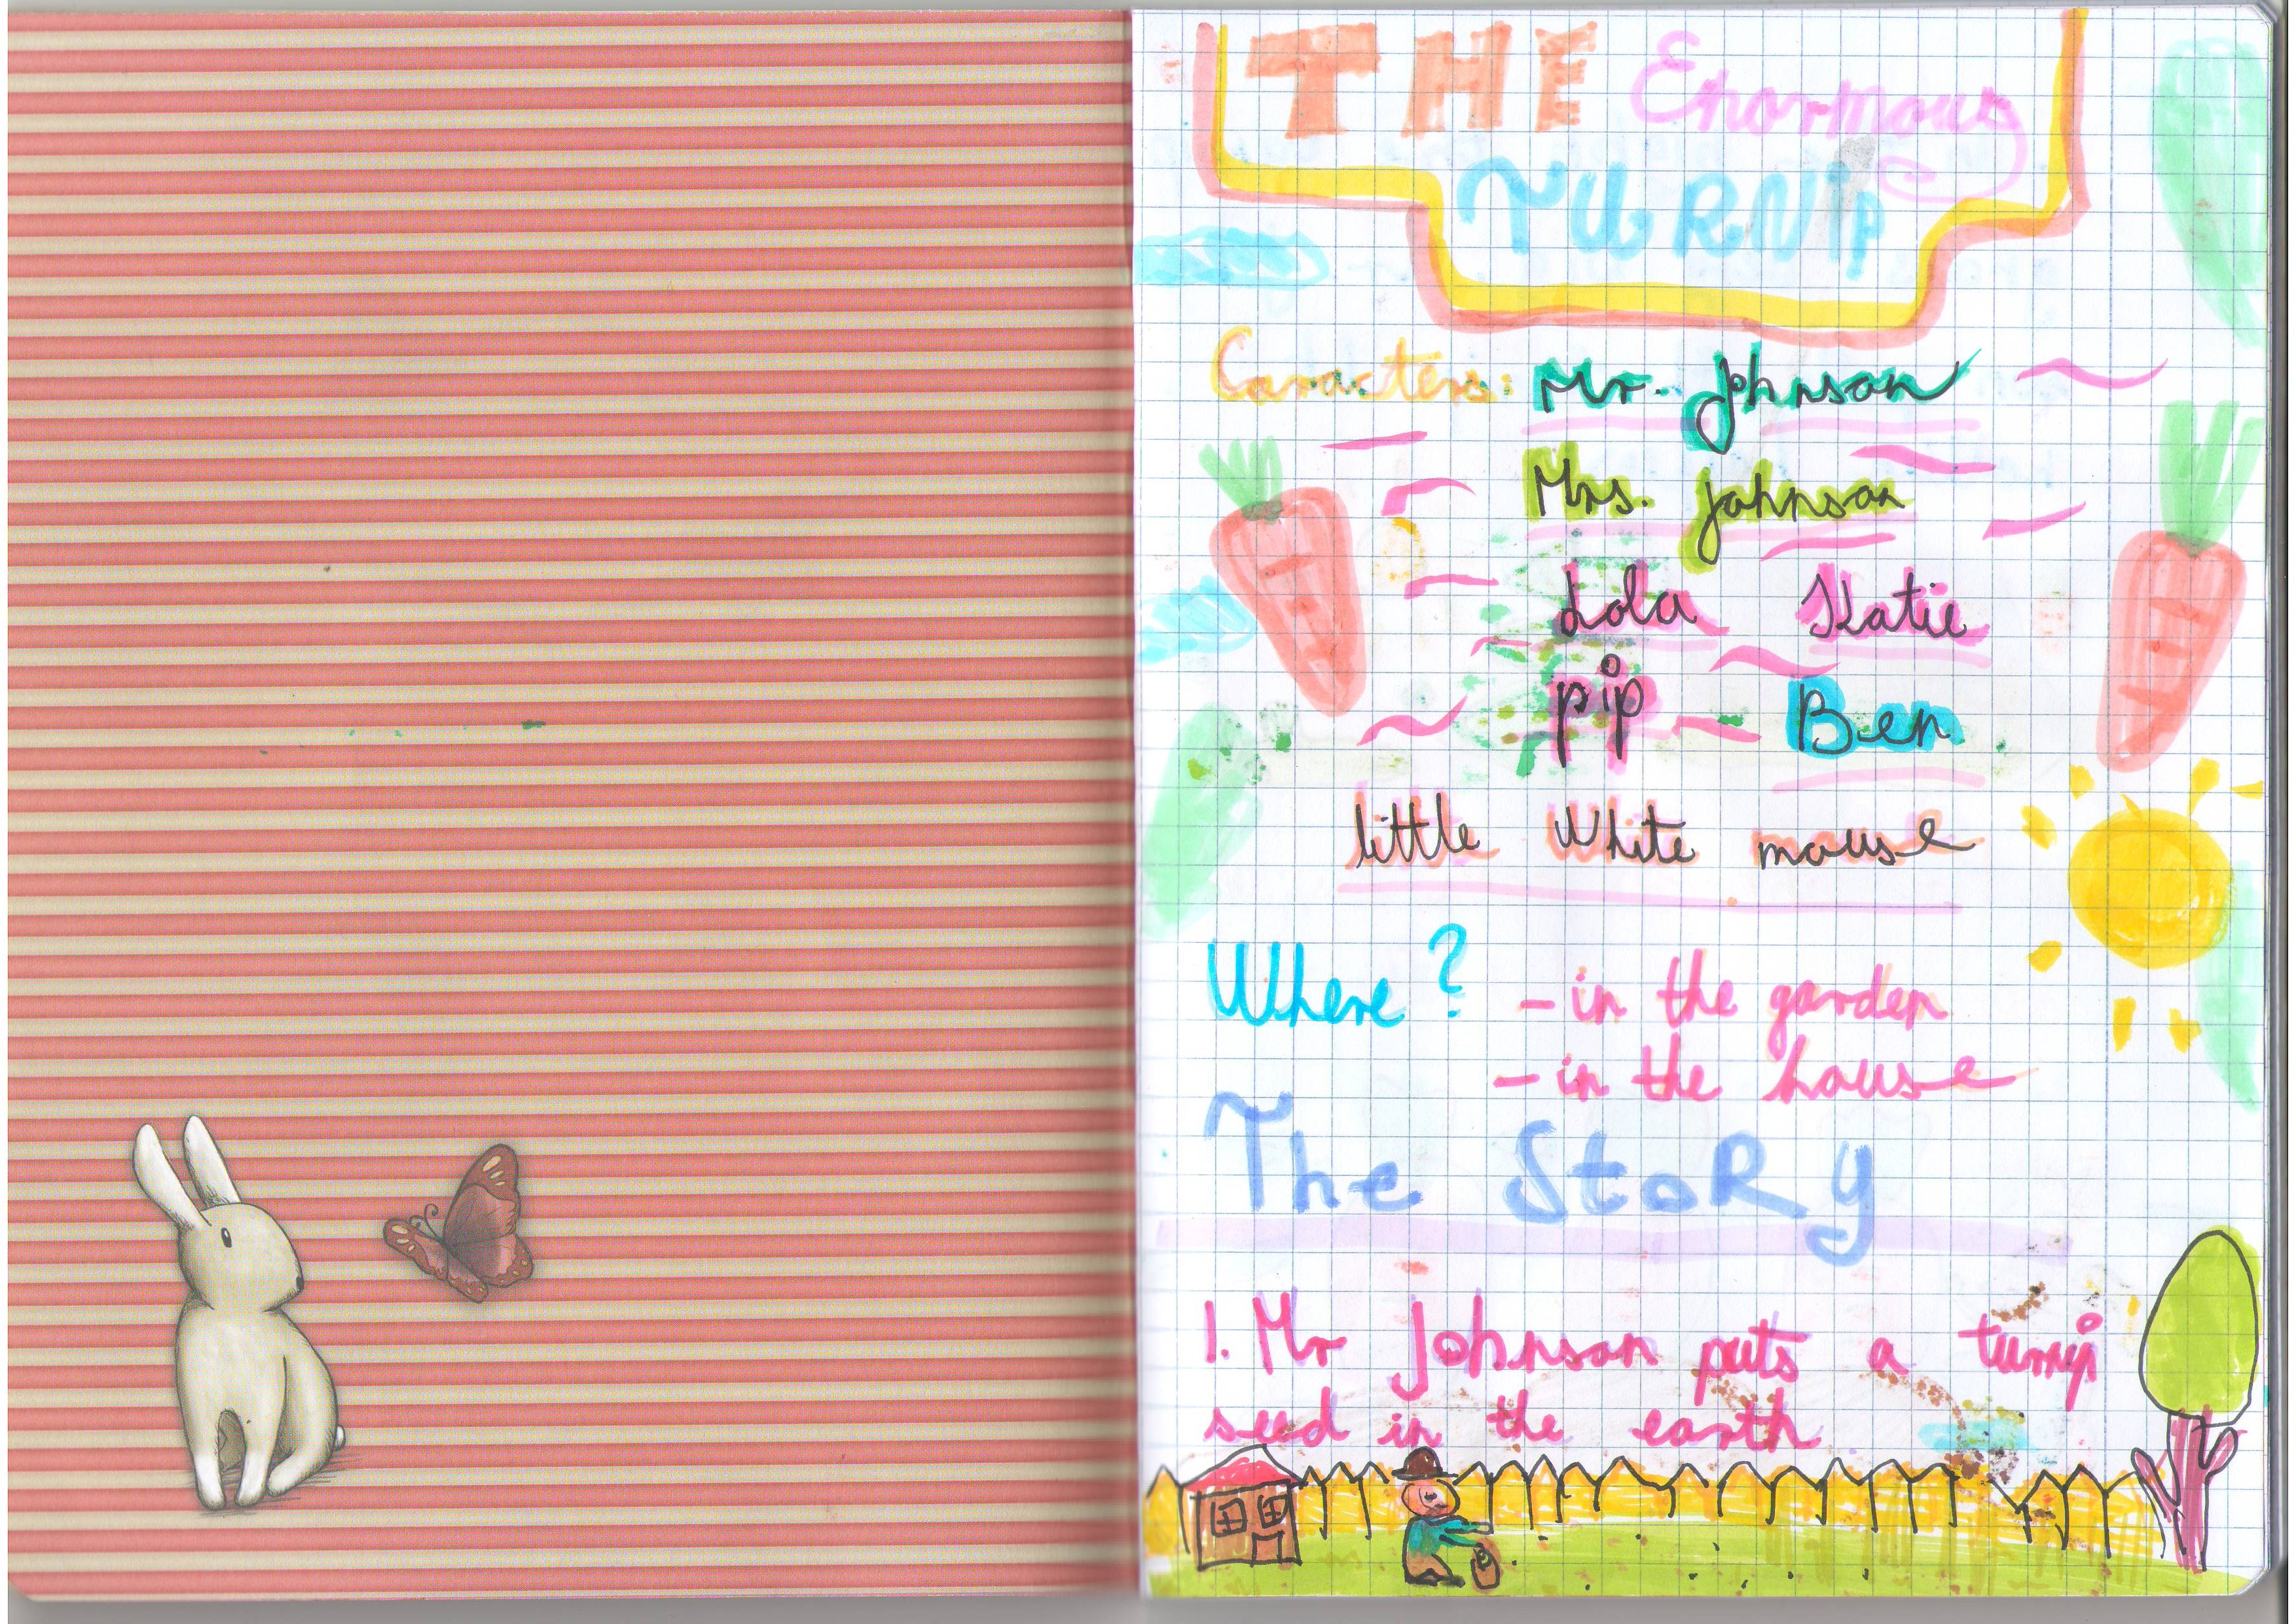 THE Enormous
TURNiP
Caracters: Mr. Johnson
Mrs. Johnson
Lola Katie
pip Ben
little White mouse
Where? - in the garden
- in the house
The StoRy
1. Mr Johnson puts a turnip
seed in the earth